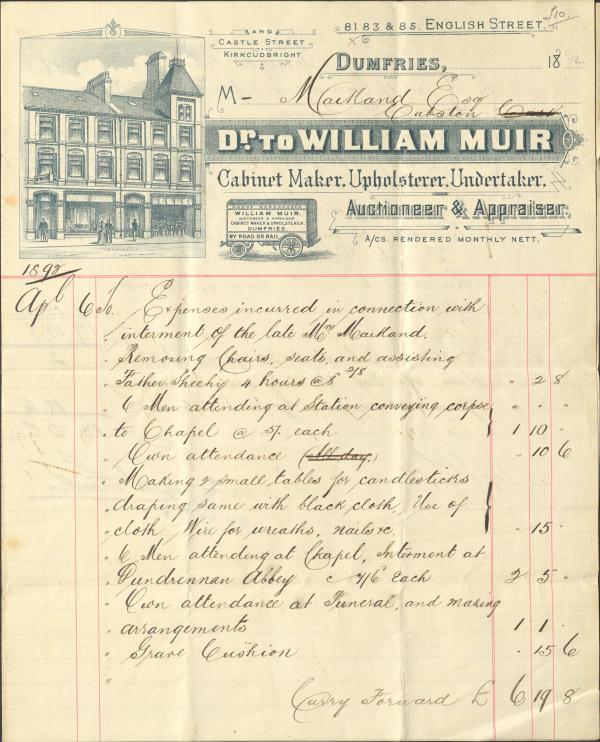 81 83 & 85. ENGLISH STREET.
AND
CASTLE STREET
KIRKCUDBRIGHT
DUMFRIES, 18
M- Maitland Esq
Dr. TO WILLIAM MUIR
Cabinet Maker. Upholsterer. Undertaker.
Auctioneer & Appraiser.
A/CS. RENDERED MONTHLY NETT.
WILLIAM MUIR.
AUCTIONEER & APPRAISER
CABINET MAKER & UPHOLSTERER.
DUMFRIES
BY ROAD OR RAIL
1892
Apl 6 To. Expenses incurred in connection with
" interment of the late Mrs Maitland.
" Removing Chairs, seats, and assisting
" Father Sheehy 4 hours @ 8 2/8 " 2 8
" 6 Men attending at Station conveying corpse " " "
" to Chapel @ 5/. each 1 10 "
" Own attendance (All day.) " 10 6
" Making 2 small tables for candlesticks
" draping same with black cloth, Use of
" cloth Wire for wreaths, nails &c. " 15 "
" 6 Men attending at Chapel, Interment at
" Dundrennan Abbey c 7/6 Each 2 5 "
" Own attendance at Funeral, and making
" arrangements 1 1 "
" Grave Cushion " 15 6
"
Carry Forward £ 6 19 8